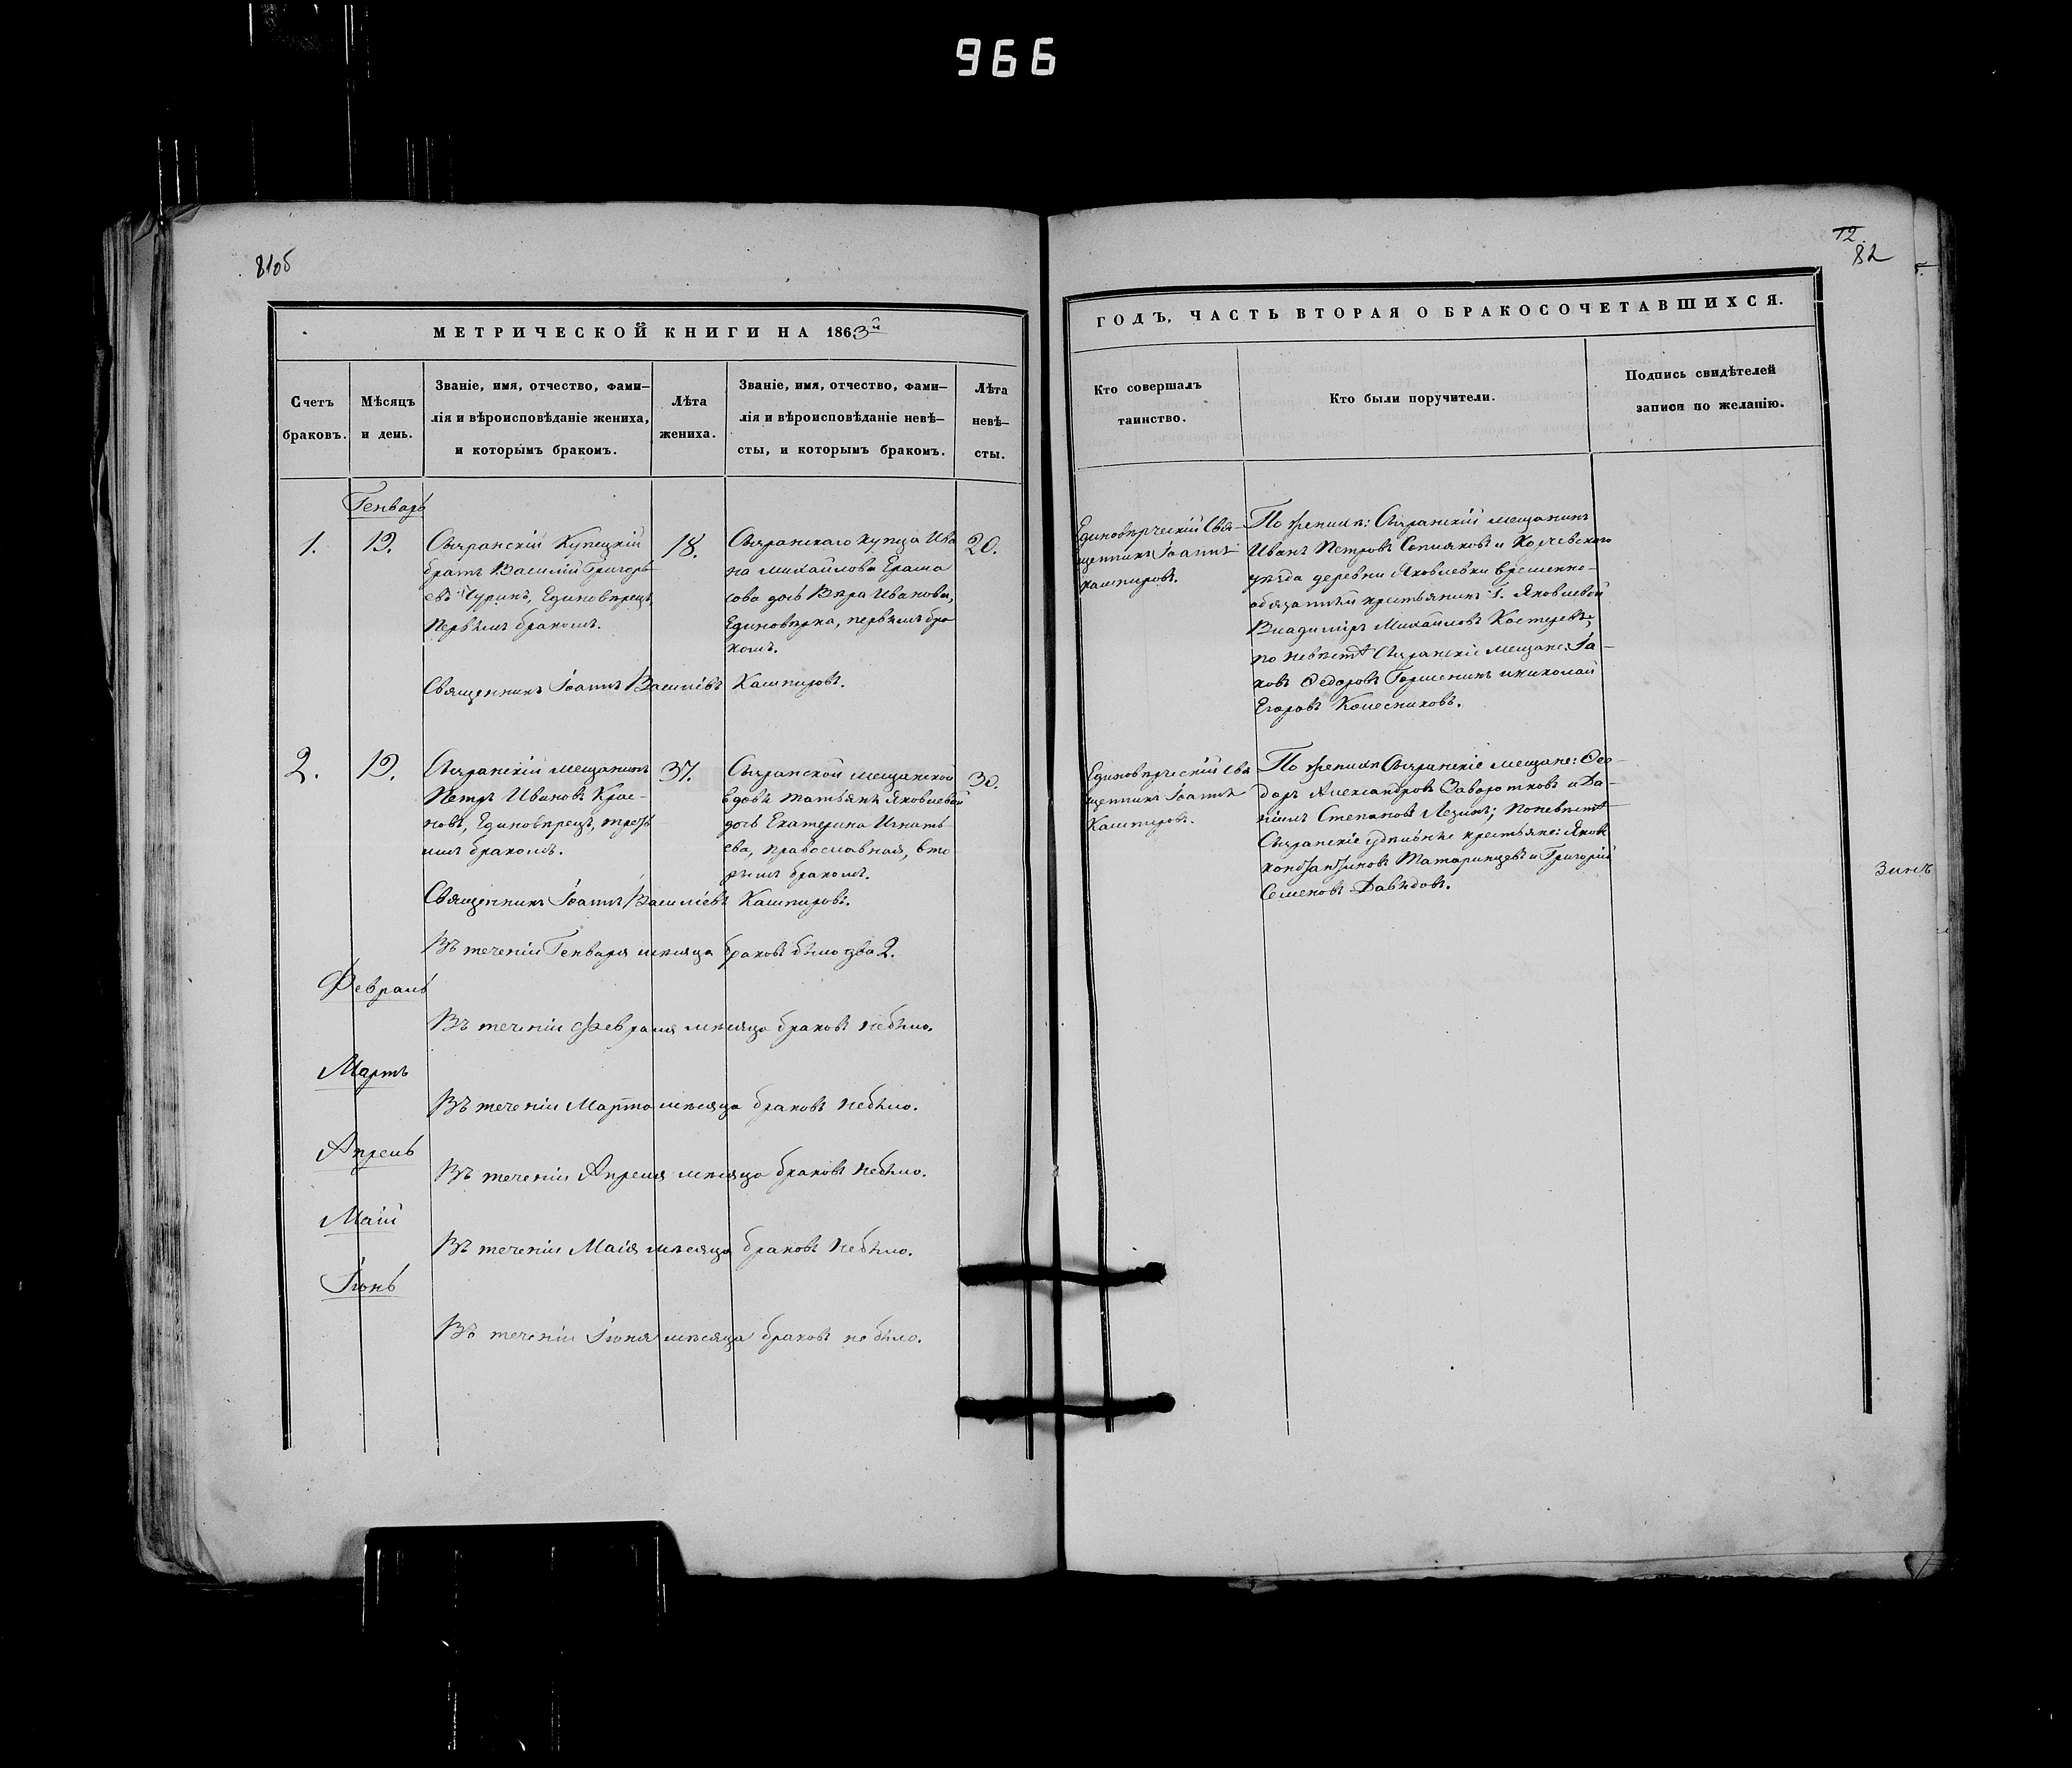 966
81об
МЕТРИЧЕСКОЙ КНИГИ НА 1863й
Счетъ
браковъ.
Мѣсяцъ
и день.
Званіе, имя, отчество, фами-
лія и вѣроисповѣданіе жениха,
и которымъ бракомъ.
Лѣта
жениха.
Званіе, имя, отчество, фами-
лія и вѣроисповѣданіе невѣ-
сты, и которымъ бракомъ.
Лѣта
невѣ-
сты.
Генварь
1.
19.
Сызранскій Купецкій
братъ Василій Григорь
евъ Чуринъ, Единовѣрецъ,
первымъ бракомъ.
18.
Сызранскаго купца Ива
на Михайлова Ерама
сова дочь Вѣра Иванова,
Единовѣрка, первымъ бра
комъ.
20.
Священникъ Іоаннъ Василіевъ Кашпировъ.
2.
19.
Сызранскій мещанинъ
Петръ Ивановъ Крас-
новъ, Единовѣрецъ, треть
имъ бракомъ.
37.
Сызранской мещанской
вдовы Татьяны Яковлевой
дочь Екатерина Игнать
ева, православная, вто
рымъ бракомъ.
30.
Священникъ Іоаннъ Василіевъ Кашпировъ.
Въ теченіи Генваря мѣсяца браковъ было два 2.
Февраль
Въ теченіи Февраля мѣсяца браковъ небыло.
Мартъ
Въ теченіи Марта мѣсяца браковъ небыло.
Апрель
Въ теченіи Апреля мѣсяца браковъ небыло.
Маій
Въ теченіи Маія мѣсяца браковъ небыло.
Іюнь
Въ теченіи Іюня мѣсяца браковъ небыло.
12.
82
ГОДЪ, ЧАСТЬ ВТОРАЯ О БРАКОСОЧЕТАВШИХСЯ.
Кто совершалъ
таинство.
Кто были поручители.
Подпись свидѣтелей
записи по желанію.
Единовѣрческій Свя-
щенникъ Іоаннъ
Кашпировъ.
По женихѣ: Сызранскій мещанинъ
Иванъ Петровъ и
уѣзда деревни Яковлевки временно-
обязанный крестьянинъ Г. Яковлевой
Владиміръ Михайловъ Костеревъ;
по невѣстѣ Сызранскіе мещане: Іа-
ковъ Федоровъ Горшенинъ и Николай
Егоровъ Колесниковъ.
Единовѣрческій Свя
щенникъ Іоаннъ
Кашпировъ.
По женихѣ Сызранскіе мещане: Фео-
доръ Александровъ Заворотковъ и Да-
ніилъ Степановъ Лезинъ; по невѣстѣ
Сызранскіе удѣльные крестьяне: Яковъ
Константиновъ Татаринцевъ и Григорій
Семеновъ Давыдовъ.
зинъ